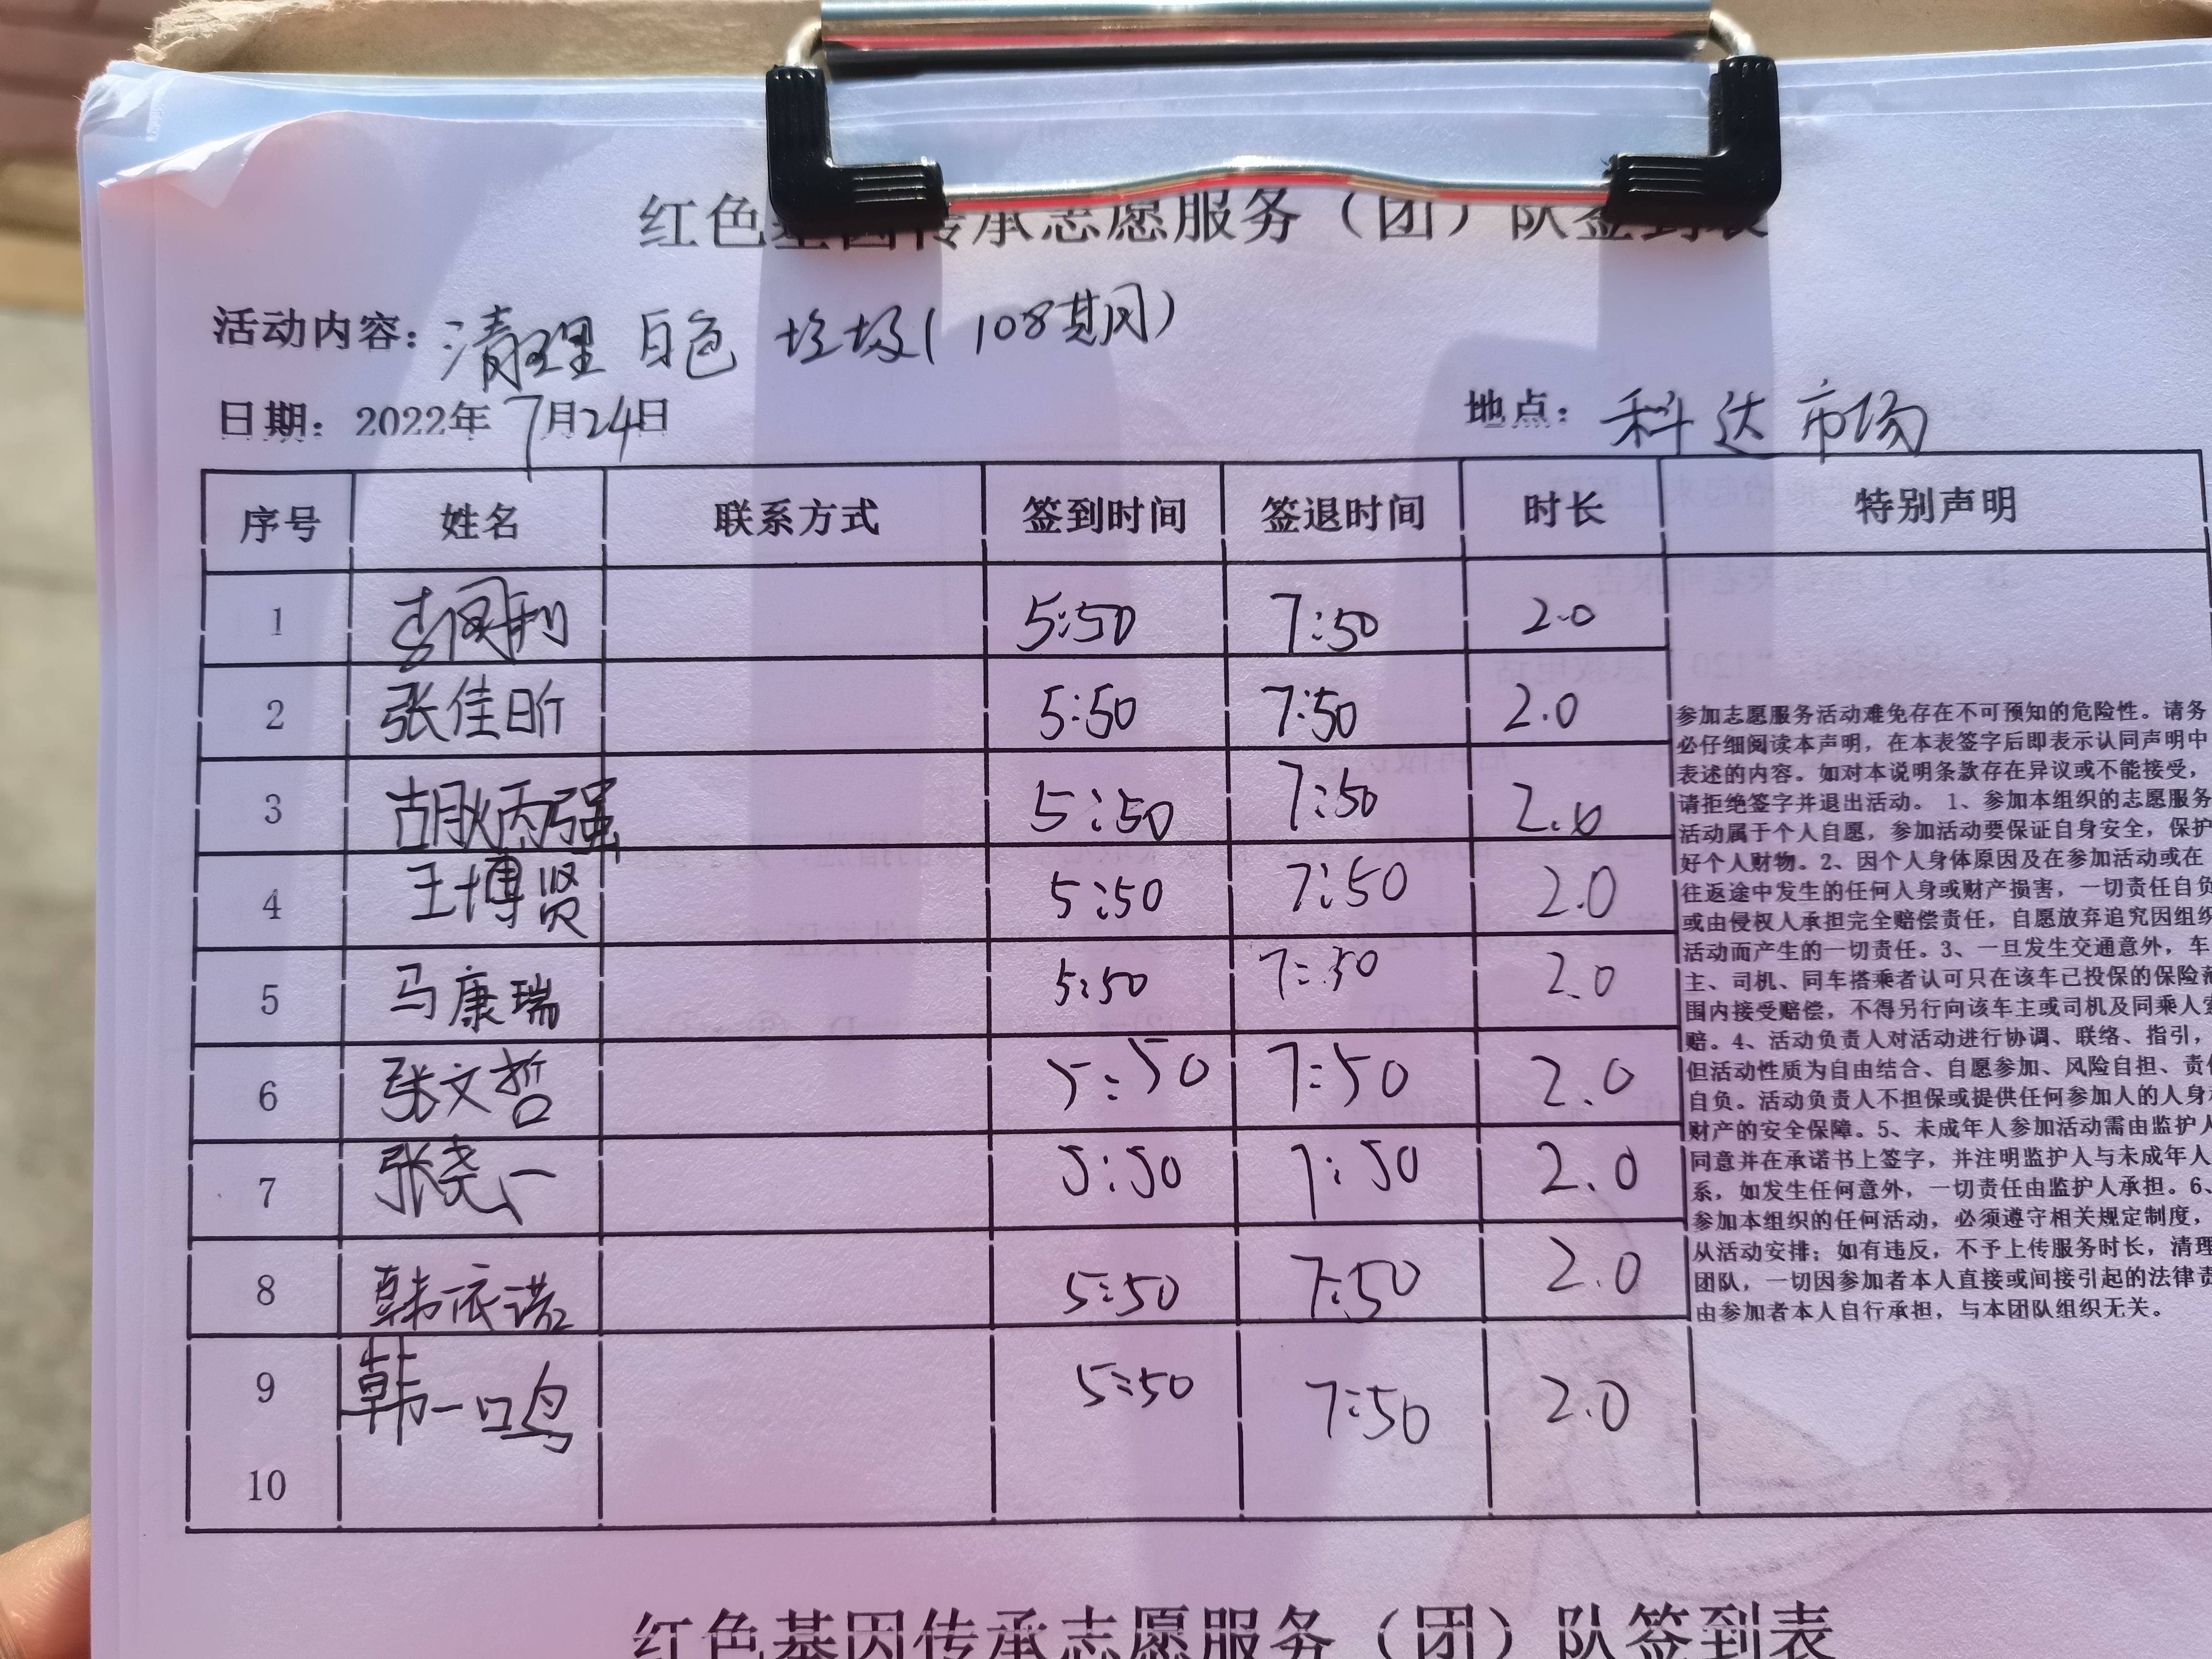 红色基因传承志愿服务（团）队签到表
活动内容：清理白色垃圾（108期）
日期：2022年7月24日 地点：科达市场
序号 姓名 联系方式 签到时间 签退时间 时长 特别声明
1 5:50 7:50 2.0
2 张佳昕 5:50 7:50 2.0
3 胡耿丙强 5:50 7:50 2.0
4 王博贤 5:50 7:50 2.0
5 马康瑞 5:50 7:50 2.0
6 张文哲 5:50 7:50 2.0
7 张尧一 5:50 7:50 2.0
8 韩依诺 5:50 7:50 2.0
9 韩一鸣 5:50 7:50 2.0
10
参加志愿服务活动难免存在不可预知的危险性。请务
必仔细阅读本声明，在本表签字后即表示认同声明中
表述的内容。如对本说明条款存在异议或不能接受，
请拒绝签字并退出活动。 1、参加本组织的志愿服务
活动属于个人自愿，参加活动要保证自身安全，保护
好个人财物。2、因个人身体原因及在参加活动或在
往返途中发生的任何人身或财产损害，一切责任自负
或由侵权人承担完全赔偿责任，自愿放弃追究因组织
活动而产生的一切责任。3、一旦发生交通意外，车
主、司机、同车搭乘者认可只在该车已投保的保险范
围内接受赔偿，不得另行向该车主或司机及同乘人索
赔。4、活动负责人对活动进行协调、联络、指引，
但活动性质为自由结合、自愿参加、风险自担、责任
自负。活动负责人不担保或提供任何参加人的人身和
财产的安全保障。5、未成年人参加活动需由监护人
同意并在承诺书上签字，并注明监护人与未成年人
系，如发生任何意外，一切责任由监护人承担。6、
参加本组织的任何活动，必须遵守相关规定制度，
从活动安排；如有违反，不予上传服务时长，清理
团队，一切因参加者本人直接或间接引起的法律责
由参加者本人自行承担，与本团队组织无关。
红色基因传承志愿服务（团）队签到表